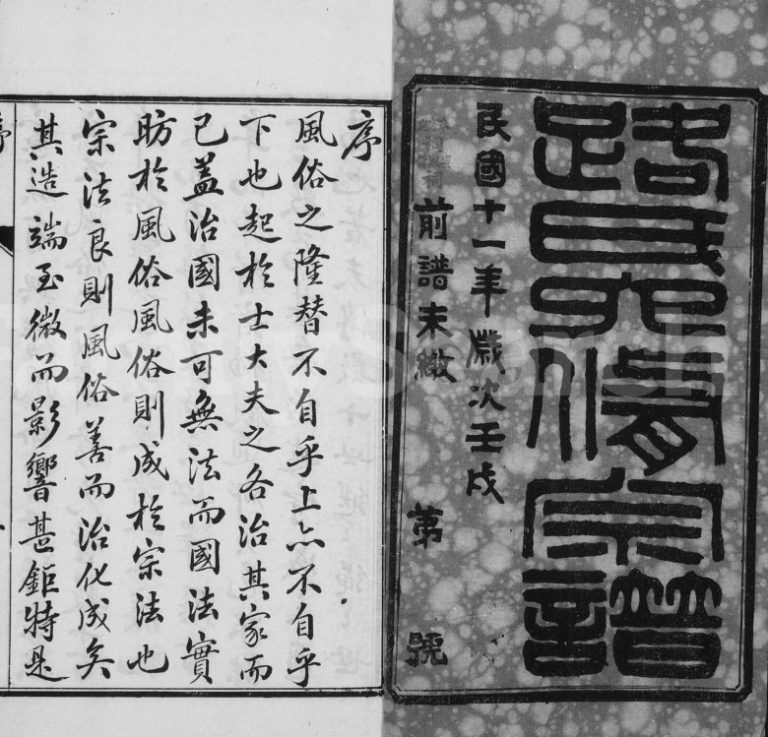 路氏修宗譜
民國十一年歲次壬戌
前譜未繳 第 號
序
風俗之隆替不自乎上亦不自乎
下也起於士大夫之各治其家而
已蓋治國未可無法而國法實
昉於風俗風俗則成於宗法也
宗法良則風俗善而治化成矣
其造端至微而影響甚鉅特是